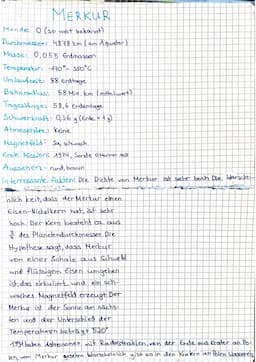 MERKUR
Monde: 0 (so weit bekannt)
Durchmesser: 4878 km (am Äquator)
Masse: 0,055 Erdmassen
Temperatur: -170°- 350°C
Umlaufzeit: 88 Erdtage
Bahnradius: 58 Mio. km (mittelwert)
Tageslänge: 58,6 Erdentage
Schwerkraft: 0,36 g (Erde = 1g)
Atmosphäre: Keine
Magnetfeld: Ja, schwach
Erste Mission: 1974, Sonde
Aussehen: rund, braun
Interessante Fakten: Die Dichte von Merkur ist sehr hoch Die Warsch-
nlich keit, dass der Merkur einen
Eisen-Nickelkern hat, ist sehr
hoch. Der Kern besteht ca. aus
des Planetendurchmesser Die
Hypothese sagt, dass Merkur
von einer Schale aus
und flüssigen Eisen umgeben
ist, das zirkuliert und ein sch-
waches Magnetfeld erzeugt. Der
Merkur ist der Sonne am nächs-
ten und der Unterschied der
Temperaturen beträgt 520°
Astronomen mit Radiostrahlen, von der Erde aus Krater an Po-
len, vom Merkur Warscheinlich gibt es in den Kratern an Polen Wassereis